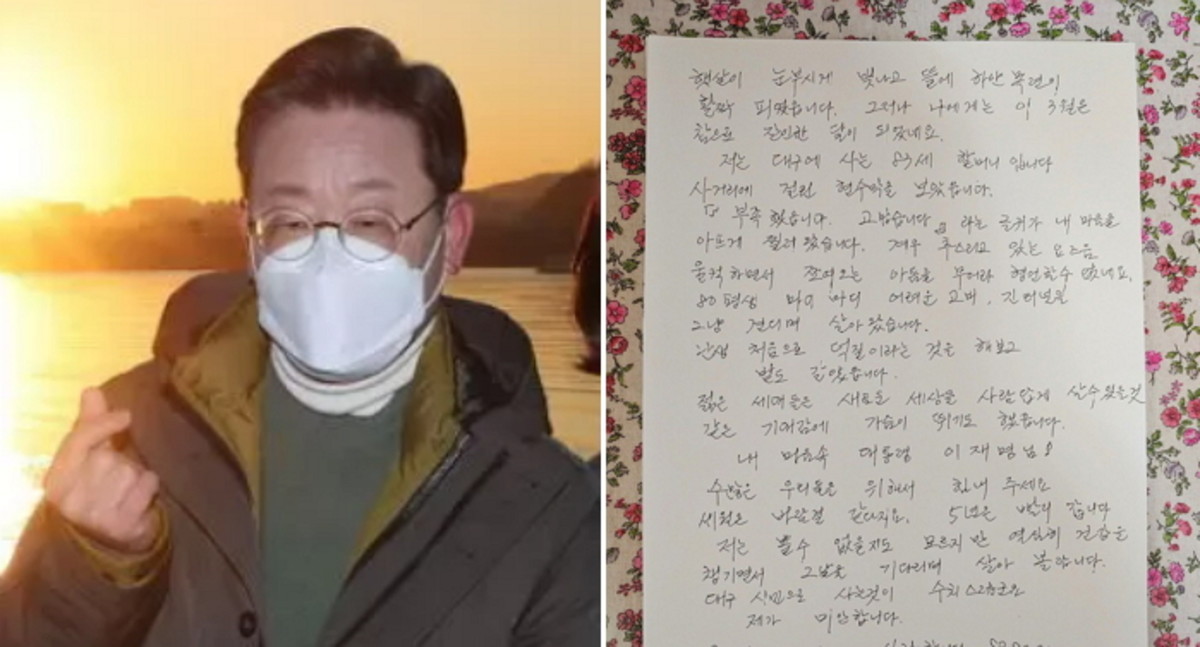 햇살이 눈부시게 빛나고 뜰에 하얀 목련이
활짝 피었습니다. 그러나 나에게는 이 3월은
참으로 잔인한 달이 되었네요.
저는 대구에 사는 83세 할머니 입니다
사거리에 걸린 현수막을 보았습니다.
"부족했습니다. 고맙습니다" 라는 글귀가 내 마음을
아프게 찔러 왔습니다. 겨우 추스리고 있는 요즈음
울컥 하면서 쪼여오는 아픔을 무어라 형언할수 없네요.
80 평생 마디 마디 어려운 고비, 진터널을
그냥 견디며 살아 왔습니다.
난생 처음으로 덕질이라는 것은 해보고
밤도 같았습니다.
젊은 세대들은 새로운 세상을 사람 답게 살수 있을것
같은 기대감에 가슴이 뛰기도 했습니다.
내 마음속 대통령 이재명님!
수많은 우리들을 위해서 힘내 주세요
세월은 바람결 같다지요. 5년은 밤이 갑니다
저는 볼수 없을지도 모르지만 열심히 건강을
챙기면서 그날을 기다리며 살아 볼랍니다.
대구 시민으로 사는것이 수치스럽군요
제가 미안합니다.